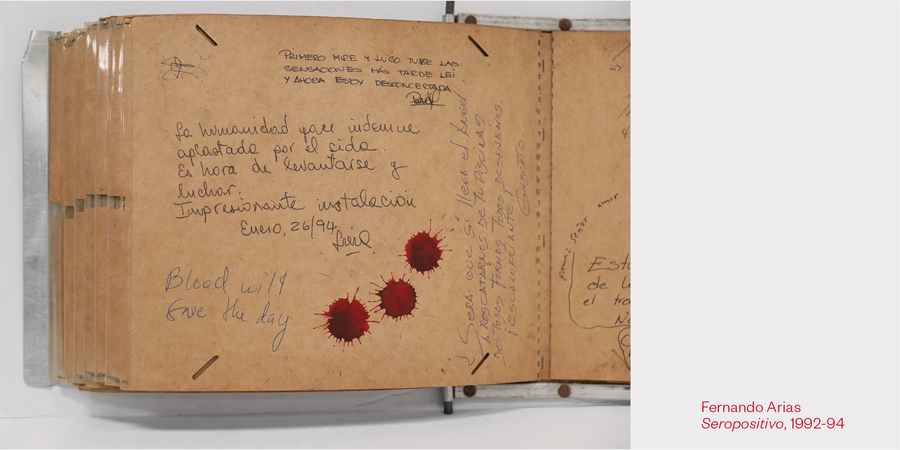 PRIMERO MIRE Y LUGO TUBE LAS
SENSACIONES MÁS TARDE LEÍ
Y AHORA ESTOY DESCONCERTADA
La humanidad yace indemne
aplastada por el sida.
Es hora de levantarse y
luchar.
Impresionante instalación
Enero, 26/94
Blood will
save the day
¿SERÁ QUE SÍ LLEGÓ EL ANGEL
A RESCATARNOS DE TU PÁGINAS?
DE TODAS FORMAS TODOS DESFILAMOS.
¡ESCALOFRIANTE!
firma: señor amor
Esto
de l
el tra
N
Fernando Arias
Seropositivo, 1992-94